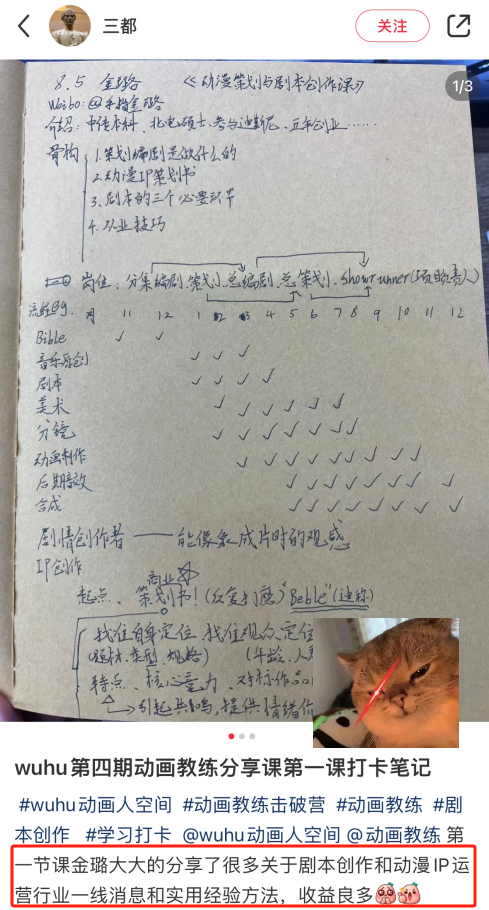 三都
关注
1/3
8.5 金璐 《动漫策划与剧本创作课》
Weibo:@手指金璐
介绍:中传本科、北电硕士、参与迪斯尼、五年创业……
骨构
1.策划编剧是做什么的
2.动漫IP策划书
3.剧本的三个必要环节
4.从业技巧
岗位:分集编剧、策划、总编剧、总策划、showrunner(项目负责人)
流程eg. 月 11 12 1 2 3 4 5 6 7 8 9 10 11 12
Bible ✓ ✓
音乐原创 ✓ ✓ ✓
剧本 ✓ ✓ ✓ ✓
美术 ✓ ✓ ✓ ✓ ✓ ✓
分镜 ✓ ✓ ✓ ✓ ✓ ✓ ✓
动画制作 ✓ ✓ ✓ ✓ ✓ ✓ ✓ ✓
后期音效 ✓ ✓ ✓ ✓ ✓ ✓ ✓
合成 ✓ ✓ ✓ ✓ ✓ ✓ ✓
剧情创作者——能像象成片时的观感
IP创作
商业
起点、策划书!(反复打磨)"Beble"(迷称)
找准自身定位 找准观众定位
(题材、类型、规格) (年龄、人
特点、核心竞力、对标作品
引起共鸣,提供情绪价
wuhu第四期动画教练分享课第一课打卡笔记
#wuhu动画人空间 #动画教练击破营 #动画教练 #剧
本创作 #学习打卡 @wuhu动画人空间 @动画教练 第
一节课金璐大大的分享了很多关于剧本创作和动漫IP运
营行业一线消息和实用经验方法，收益良多